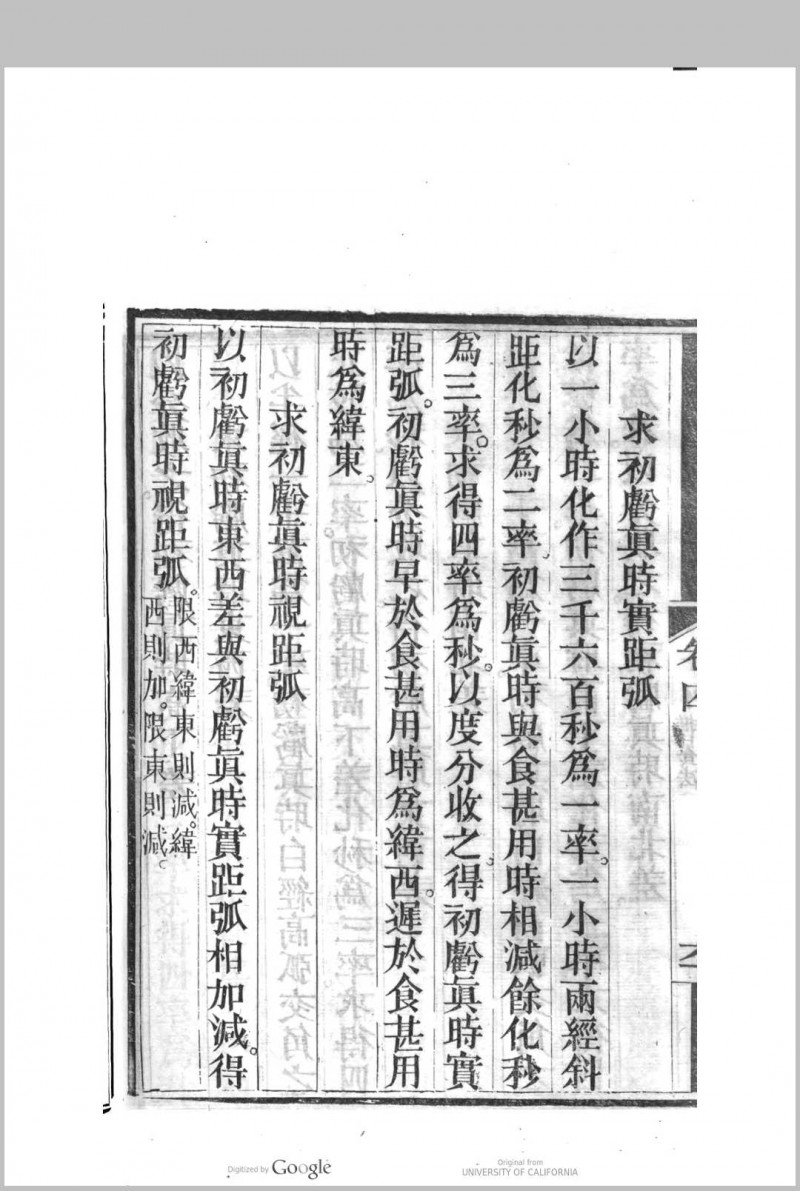 求初虧眞時實距弧
以一小時化作三千六百秒爲一率。一小時兩經斜
距化秒爲二率。初虧眞時與食甚用時相減餘化秒
爲三率。求得四率爲秒。以度分收之。得初虧眞時實
距弧。初虧眞時早於食甚用時爲緯西。遲於食甚用
時爲緯東。
求初虧眞時視距弧
以初虧眞時東西差與初虧眞時實距弧相加減。得
初虧眞時視距弧。限西緯東則減。緯
西則加。限東則減。
卷四
Digitized by Google
Original from
UNIVERSITY OF CALIFORNIA